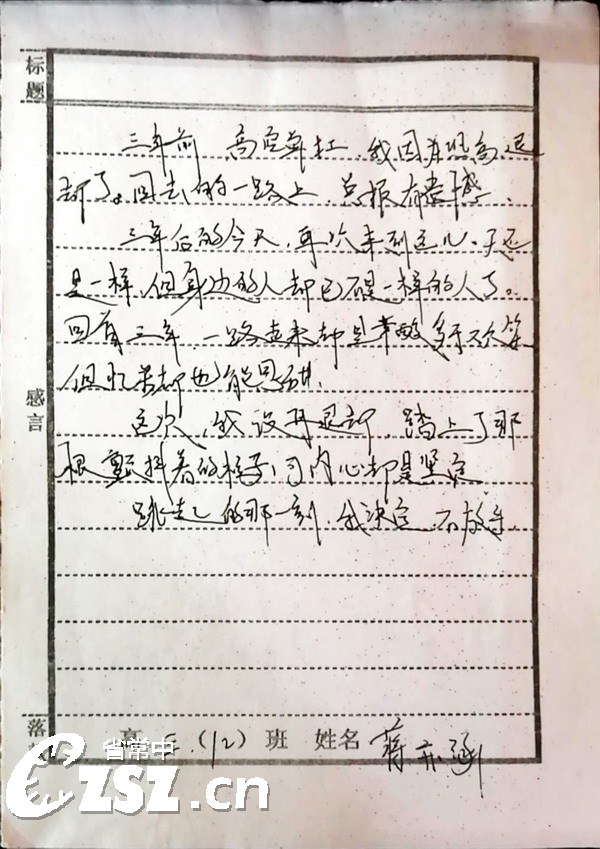 标题
三年前 高空单杠，我因为恐高退
却了。回去的一路上，总很有挫折感。
三年后的今天，再次来到这儿，还
是一样，但身边的人却已不是一样的人了。
回首三年 一路走来却是
但忆苦却也能思甜。
感言
这次，我没再退却，踏上了那
根颤抖着的 内心却是坚定
跳起的那一刻，我决定 不放手。
落款
高三（12）班 姓名 蒋亦涵
省常中
czsz.cn